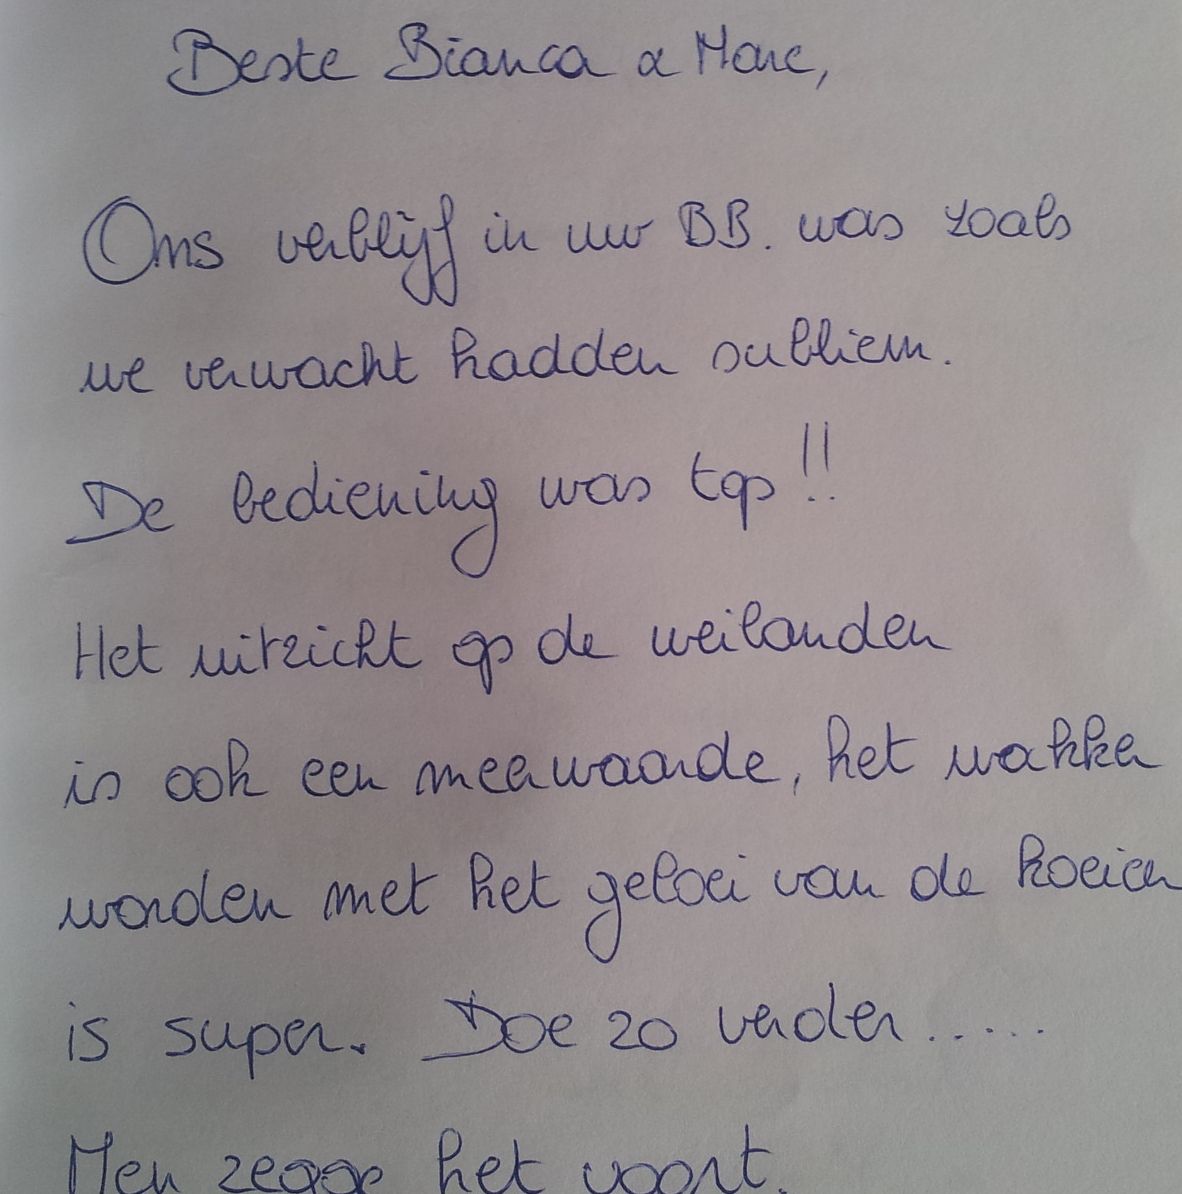 Beste Bianca & Marc,
Ons verblijf in uw BB. was zoals
we verwacht hadden subliem.
De bediening was top!!
Het uitzicht op de weilanden
is ook een meerwaarde, het wakker
worden met het geloei van de koeien
is super. Doe zo verder.....
Men zegge het voort.